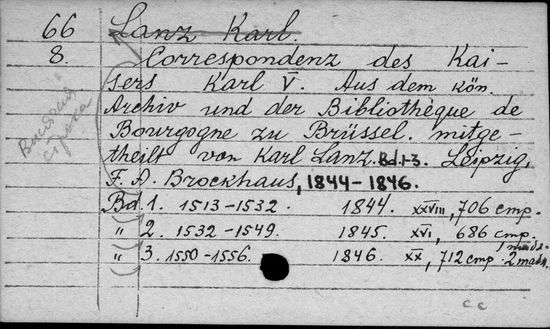 66 Lanz Karl.
8. Correspondenz des Kai-
sers Karl V. Aus dem kön.
Archiv und der Bibliothèque de
Bourgogne zu Brüssel. mitge-
theilt von Karl Lanz. Bd. 1-3. Leipzig,
F. A. Brockhaus, 1844-1846.
Bd. 1. 1513-1532. 1844. XXVIII, 706 cmp.
" 2. 1532-1549. 1845. XVI, 686 cmp.
" 3. 1550-1556. 1846. XX, 712 cmp. 2 табл.
Висячая
строка
cc